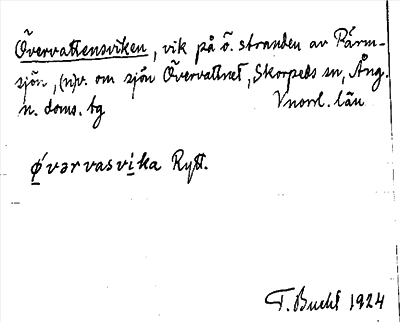 Övervattensviken, vik på ö. stranden av Rärm-
sjön, (n)v. om sjön Övervattnet, Skorpeds sn, Ång.
n. doms. tg Vnorrl. län
ǿ̱vərvasvi̱ka Ryft.
T. Bucht 1924